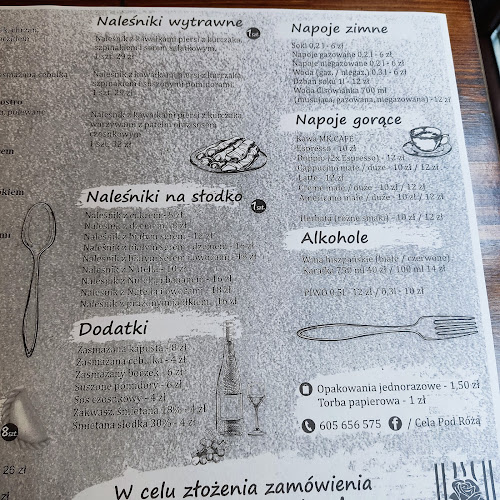 Naleśniki wytrawne
Naleśnik z kawałkami piersi z kurczaka,
szpinakiem i serem sałatkowym.
1 szt. 29 zł
1szt.
Naleśnik z kawałkami piersi z kurczaka,
szpinakiem i suszonymi pomidorami.
1 szt. 29 zł
Naleśnik z kawałkami piersi z kurczaka
warzywami z patelni oraz sosem
czosnkowym.
1 szt. 32 zł
Naleśniki na słodko
1szt.
Naleśnik z cukrem - 8 zł
Naleśnik z dżemem - 
Naleśnik z białym serem - 12 zł
Naleśnik z białym serem i dżemem - 
Naleśnik z białym serem i 
Naleśnik z Nutellą - 10 zł
Naleśnik z Nutellą i bananem - 16 zł
Naleśnik z Nutellą i 
Naleśnik z prażonym jabłkiem - 16 zł
Dodatki
Zasmażana kapusta - 8 zł
Zasmażana cebulka - 4 zł
Zasmażany boczek - 6 zł
Suszone pomidory - 6 zł
Sos czosnkowy - 4 zł
Zakwas śmietana 18% - 4 zł
Śmietana słodka 30% - 4 zł
Napoje zimne
Soki 0,2 l - 6 zł
Napoje gazowane 0,2 l - 6 zł
Napoje niegazowane 0,2 l - 6 zł
Woda (gaz. / niegaz.) 0,3 l - 6 zł
Dzban soku 1l - 12 zł
Woda cisowianka 700 ml
(musująca, gazowana, niegazowana) - 12 zł
Napoje gorące
Kawa MK CAFE
Espresso - 10 zł
Doppio (2x Espresso) - 12 zł
Cappucino małe / duże - 10 zł / 12 zł
Latte - 12 zł
Creme małe / duże - 10 zł / 12 zł
Americano małe / duże - 10 zł / 12 zł
Herbata (różne smaki) - 10 zł / 12 zł
Alkohole
Wina hiszpańskie (białe / czerwone)
Karafka 750 ml 40 zł / 100 ml 14 zł
PIWO 0,5l - 12 zł / 0,3l - 10 zł
Opakowania jednorazowe - 1,50 zł
Torba papierowa - 1 zł
605 656 575
/ Cela Pod Różą
8szt.
W celu złożenia zamówienia